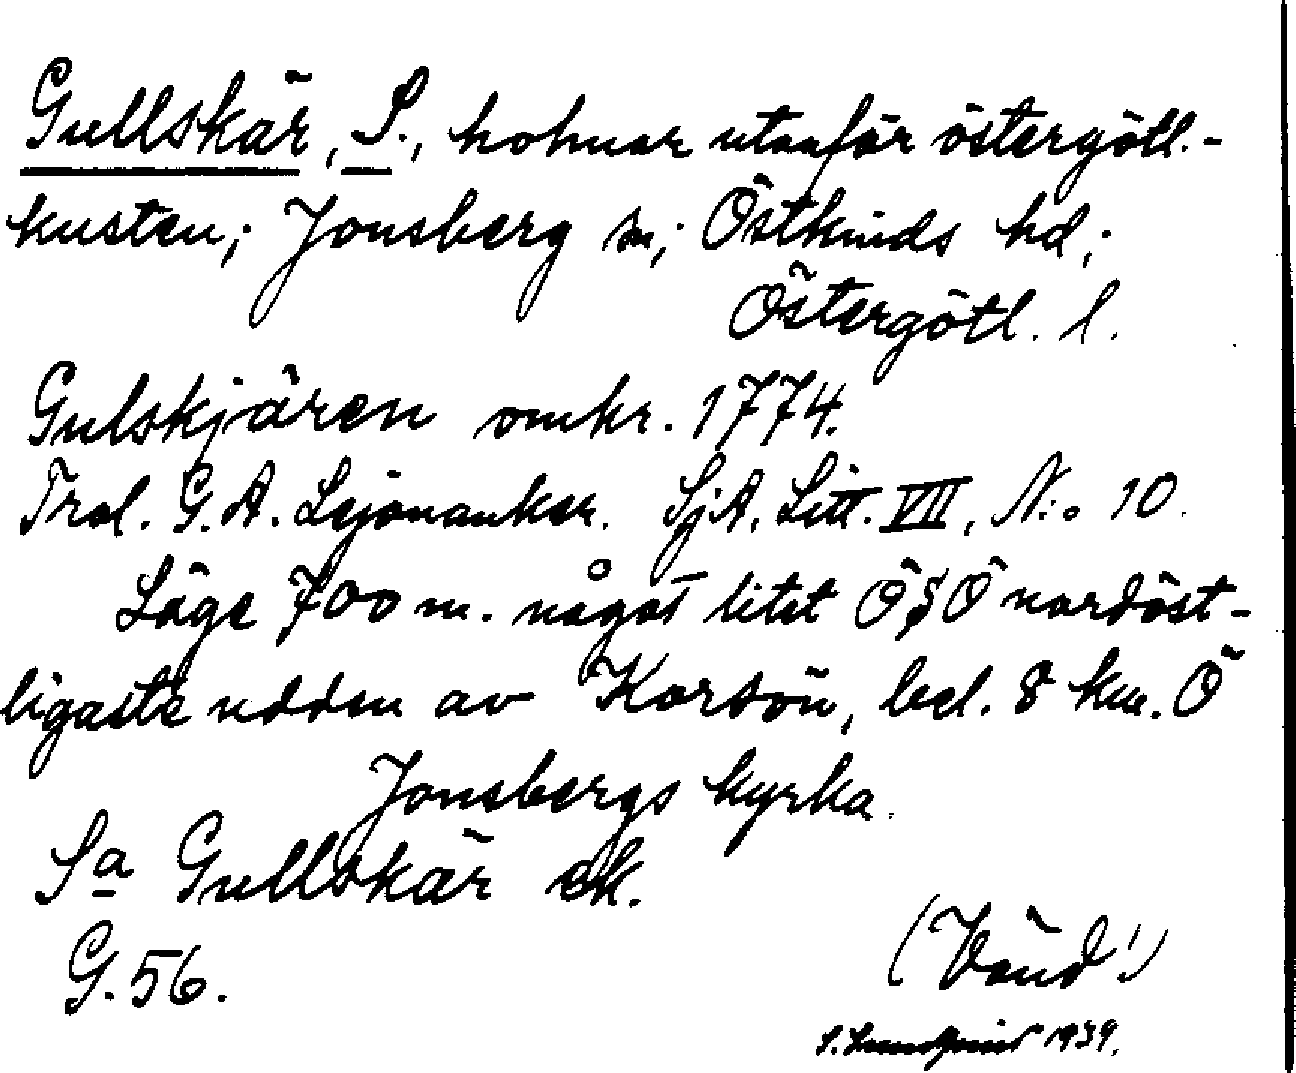 Gullskär, S., holmar utanför östergötl.-
kusten; Jonsberg sn; Östkinds hd;
Östergötl. l.
Gulskjären omkr. 1774.
Trol. G. A. Lejonanker. SjA. Litt. VII, N:o 10.
Läge 700 m. något litet ÖSÖ nordöst-
ligaste udden av Korsön, bel. 8 km. Ö
Jonsbergs kyrka.
Sa Gullskär ek.
G. 56.
(Vänd!)
S. Lundqvist 1939.